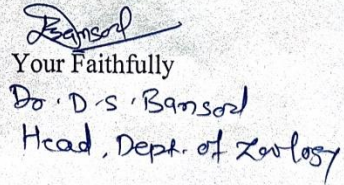 Bansod
Your Faithfully
Dr. D. S. Bansod
Head, Dept. of Zoology